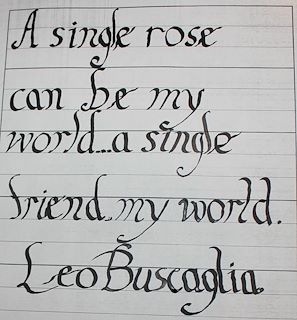 A single rose
can be my
world...a single
friend, my world.
Leo Buscaglia